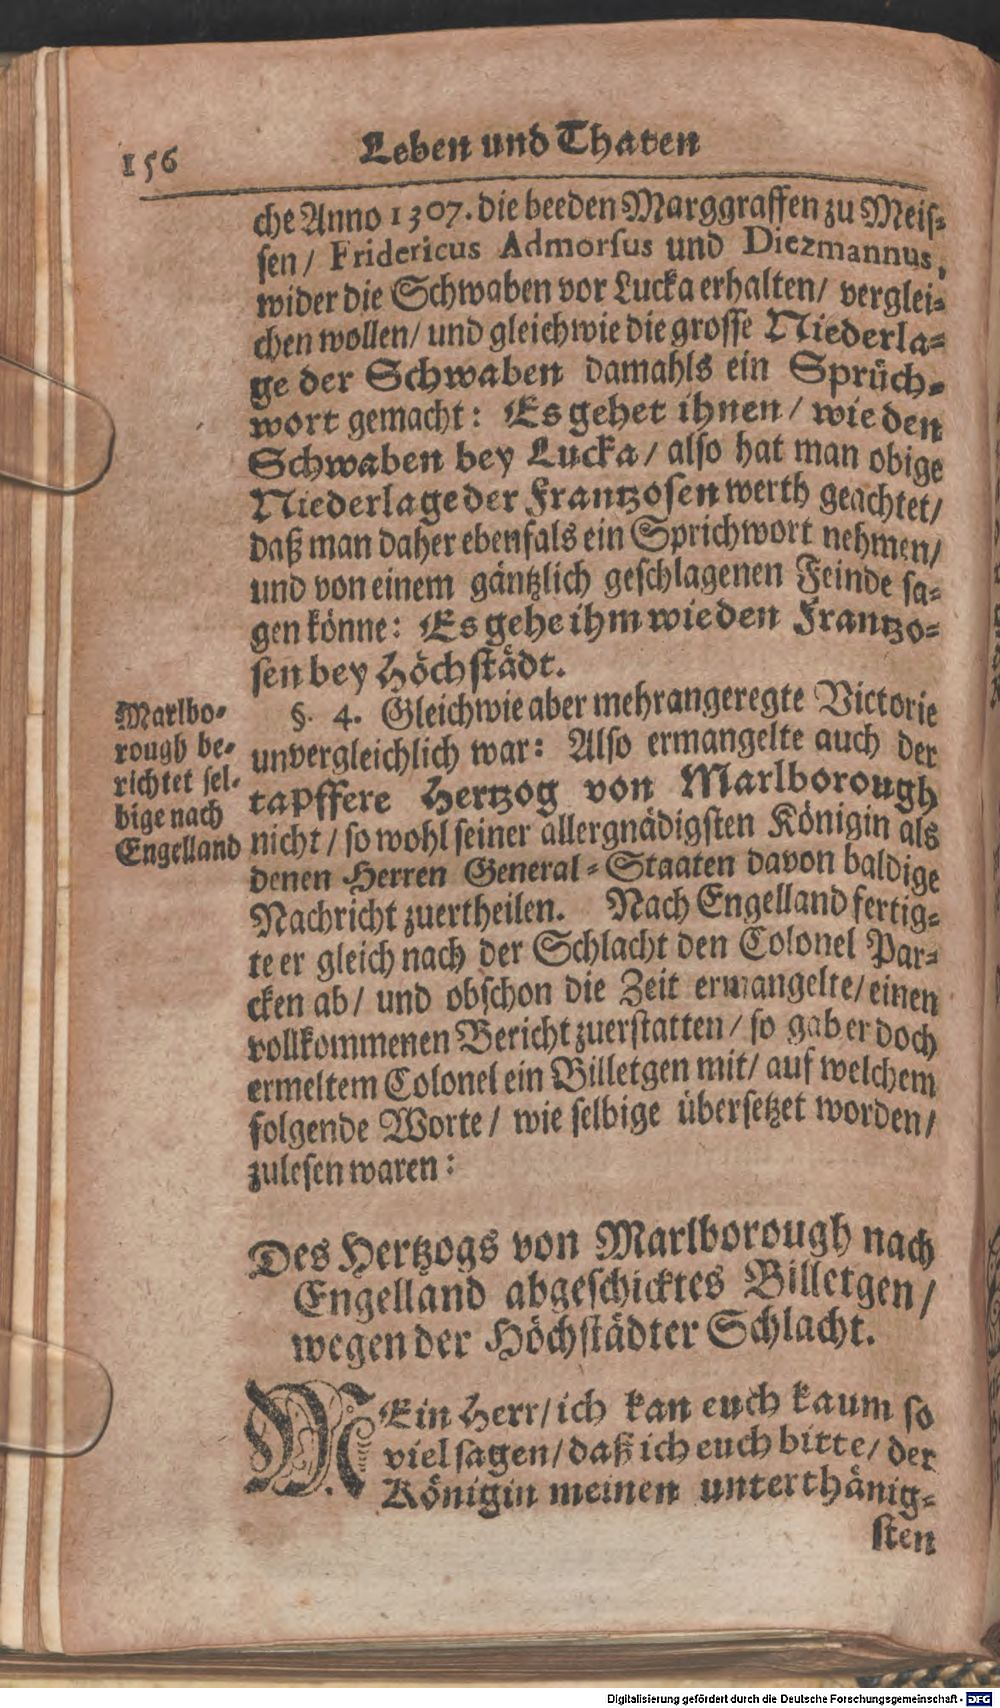 156 Leben und Thaten
che Anno 1307. die beeden Marggraffen zu Meis-
sen / Fridericus Admorsus und Diezmannus,
wider die Schwaben vor Lucka erhalten / verglei-
chen wollen / und gleichwie die grosse Niederla-
ge der Schwaben damahls ein Sprüch-
wort gemacht: Es gehet ihnen / wie den
Schwaben bey Lucka / also hat man obige
Niederlage der Frantzosen werth geachtet /
daß man daher ebenfals ein Sprichwort nehmen /
und von einem gäntzlich geschlagenen Feinde sa-
gen könne: Es gehe ihm wie den Frantzo-
sen bey Höchstädt.
Marlbo-
rough be-
richtet sel-
bige nach
Engelland
§. 4. Gleichwie aber mehrangeregte Victorie
unvergleichlich war: Also ermangelte auch der
tapffere Hertzog von Marlborough
nicht / so wohl seiner allergnädigsten Königin als
denen Herren General-Staaten davon baldige
Nachricht zuertheilen. Nach Engelland fertig-
te er gleich nach der Schlacht den Colonel Par-
cken ab / und obschon die Zeit ermangelte / einen
vollkommenen Bericht zuerstatten / so gab er doch
ermeltem Colonel ein Billetgen mit / auf welchem
folgende Worte / wie selbige übersetzet worden /
zulesen waren:
Des Hertzogs von Marlborough nach
Engelland abgeschicktes Billetgen /
wegen der Höchstädter Schlacht.
MEin Herr / ich kan euch kaum so
viel sagen / daß ich euch bitte / der
Königin meinen unterthänig-
sten
Digitalisierung gefördert durch die Deutsche Forschungsgemeinschaft - DFG